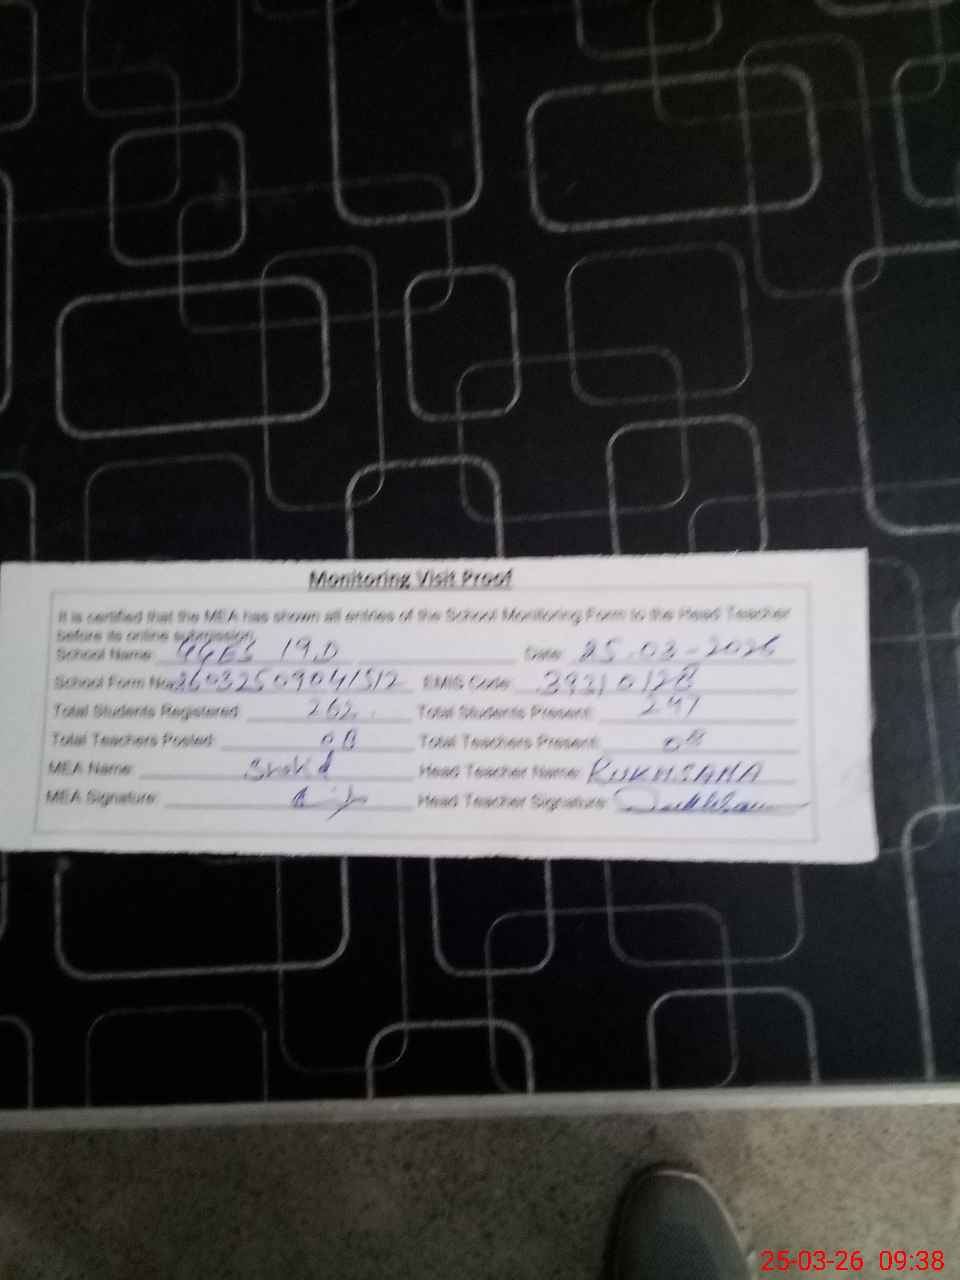 Monitoring Visit Proof
It is certified that the MEA has shown all entries of the School Monitoring Form to the Head Teacher
before its online submission.
School Name: GGES 19.D Date: 25.03-2026
School Form No. EMIS Code: 39310128
Total Students Registered: 262 Total Students Present: 241
Total Teachers Posted: 08 Total Teachers Present: 08
MEA Name: Head Teacher Name: RUKHSANA
MEA Signature: Head Teacher Signature:
25-03-26 09:38